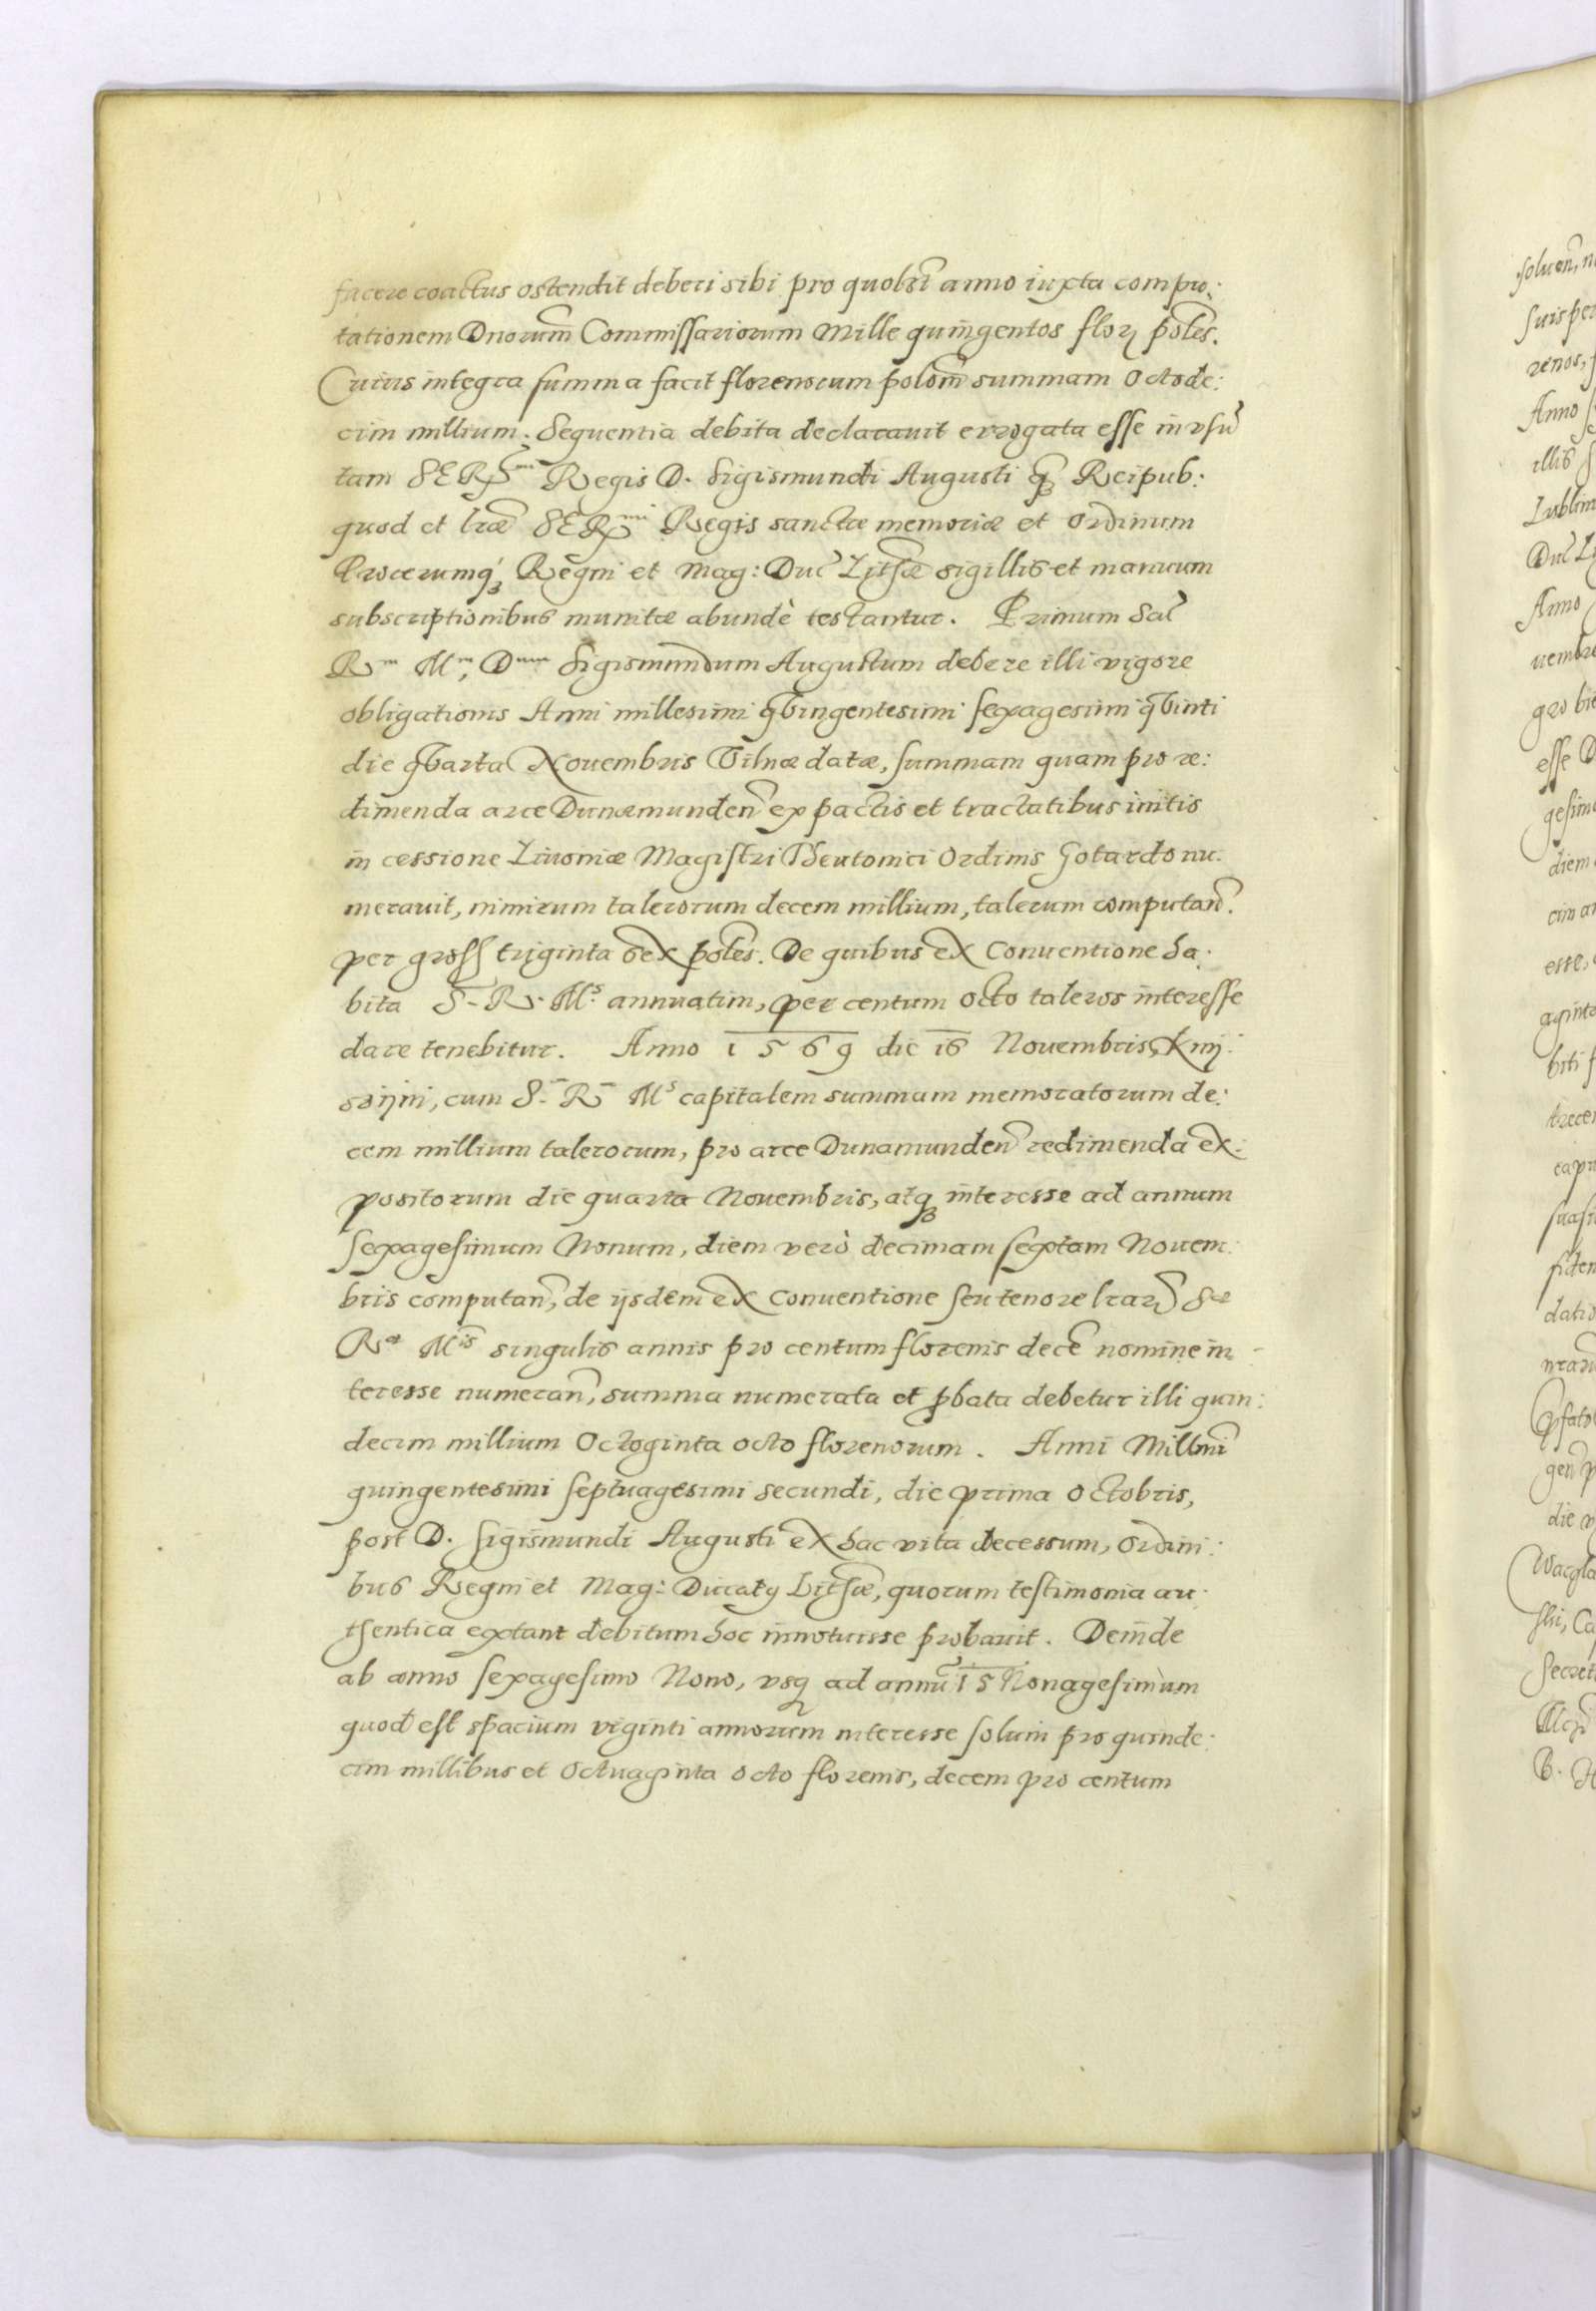 facere coactus ostendit deberi sibi pro quolꝫt anno iuxta compro:
tationem Dnorum̃ Commissariorum Mille quingentos floꝝ poles.
Cuius integra summa facit florenorum polon̄ summam Octode:
cim millium. Sequentia debita declarauit errogata esse in vsũ
tam SERᵐⁱ Regis D. Sigismundi Augusti q̃ꝫ Reipub:
quod et lræ SERᵐⁱ Regis sanctæ memoriæ et Ordinum
Procerumqꝫ Regni et Mag: Duc̃ Lithæ sigillis et manuum
subscriptionibus munitæ abundè testantur. Primum Sac̃
Rᵐ Mᵐ, Dⁿᵘᵐ Sigismundum Augustum debere illi vigore
obligationis Anni millesimi qũingentesimi sexagesimi qũinti
die qũarta Nouembris Vilnæ datæ, summam quam pro re:
dimenda arce Dunæmunden̄ ex pactis et tractatibus initis
in cessione Liuoniæ Magistri Theutonici Ordinis Gotardo nu:
merauit, nimirum talerorum decem millium, talerum computan̄.
per gross triginta sex poles. De quibus ex Conuentione ha:
bita S. R. Mˢ. annuatim, per centum octo taleros interesse
dare tenebitur. Anno 1569 die 16 Nouembris, Knij:
szijni, cum S. R Mˢ capitalem summam memoratorum de:
cem millium talerorum, pro arce Dunamunden̄ redimenda ex:
positorum die quarta Nouembris, atqꝫ interesse ad annum
sexagesimum Nonum, diem verò decimam sextam Nouem:
bris computan̄, de ijsdem ex Conuentione seu tenore lraꝝ Sæ
Ræ Mⁱˢ singulis annis pro centum florenis decẽ nomine in
teresse numeran̄, summa numerata et ꝓbata debetur illi quin:
decim millium Octoginta octo florenorum. Anni Millmi
quingentesimi septuagesimi secundi, die prima Octobris,
post D. Sigismundi Augusti ex hac vita decessum, Ordini:
bus Regni et Mag: Ducatꝰ Lithæ, quorum testimonia au:
thentica extant debitum hoc innotuisse probauit. Deinde
ab anno sexagesimo Nono, vsqꝫ ad annũ 15 Nonagesimum
quod est spacium viginti annorum interesse solum pro quinde:
cim millibus et Octuaginta octo florenis, decem pro centum